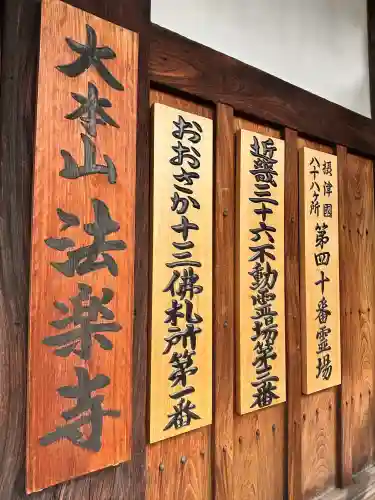 摂津國
八十八ヶ所
第四十番霊場
近畿三十六不動霊場第三番
おおさか十三佛札所第一番
大本山法樂寺